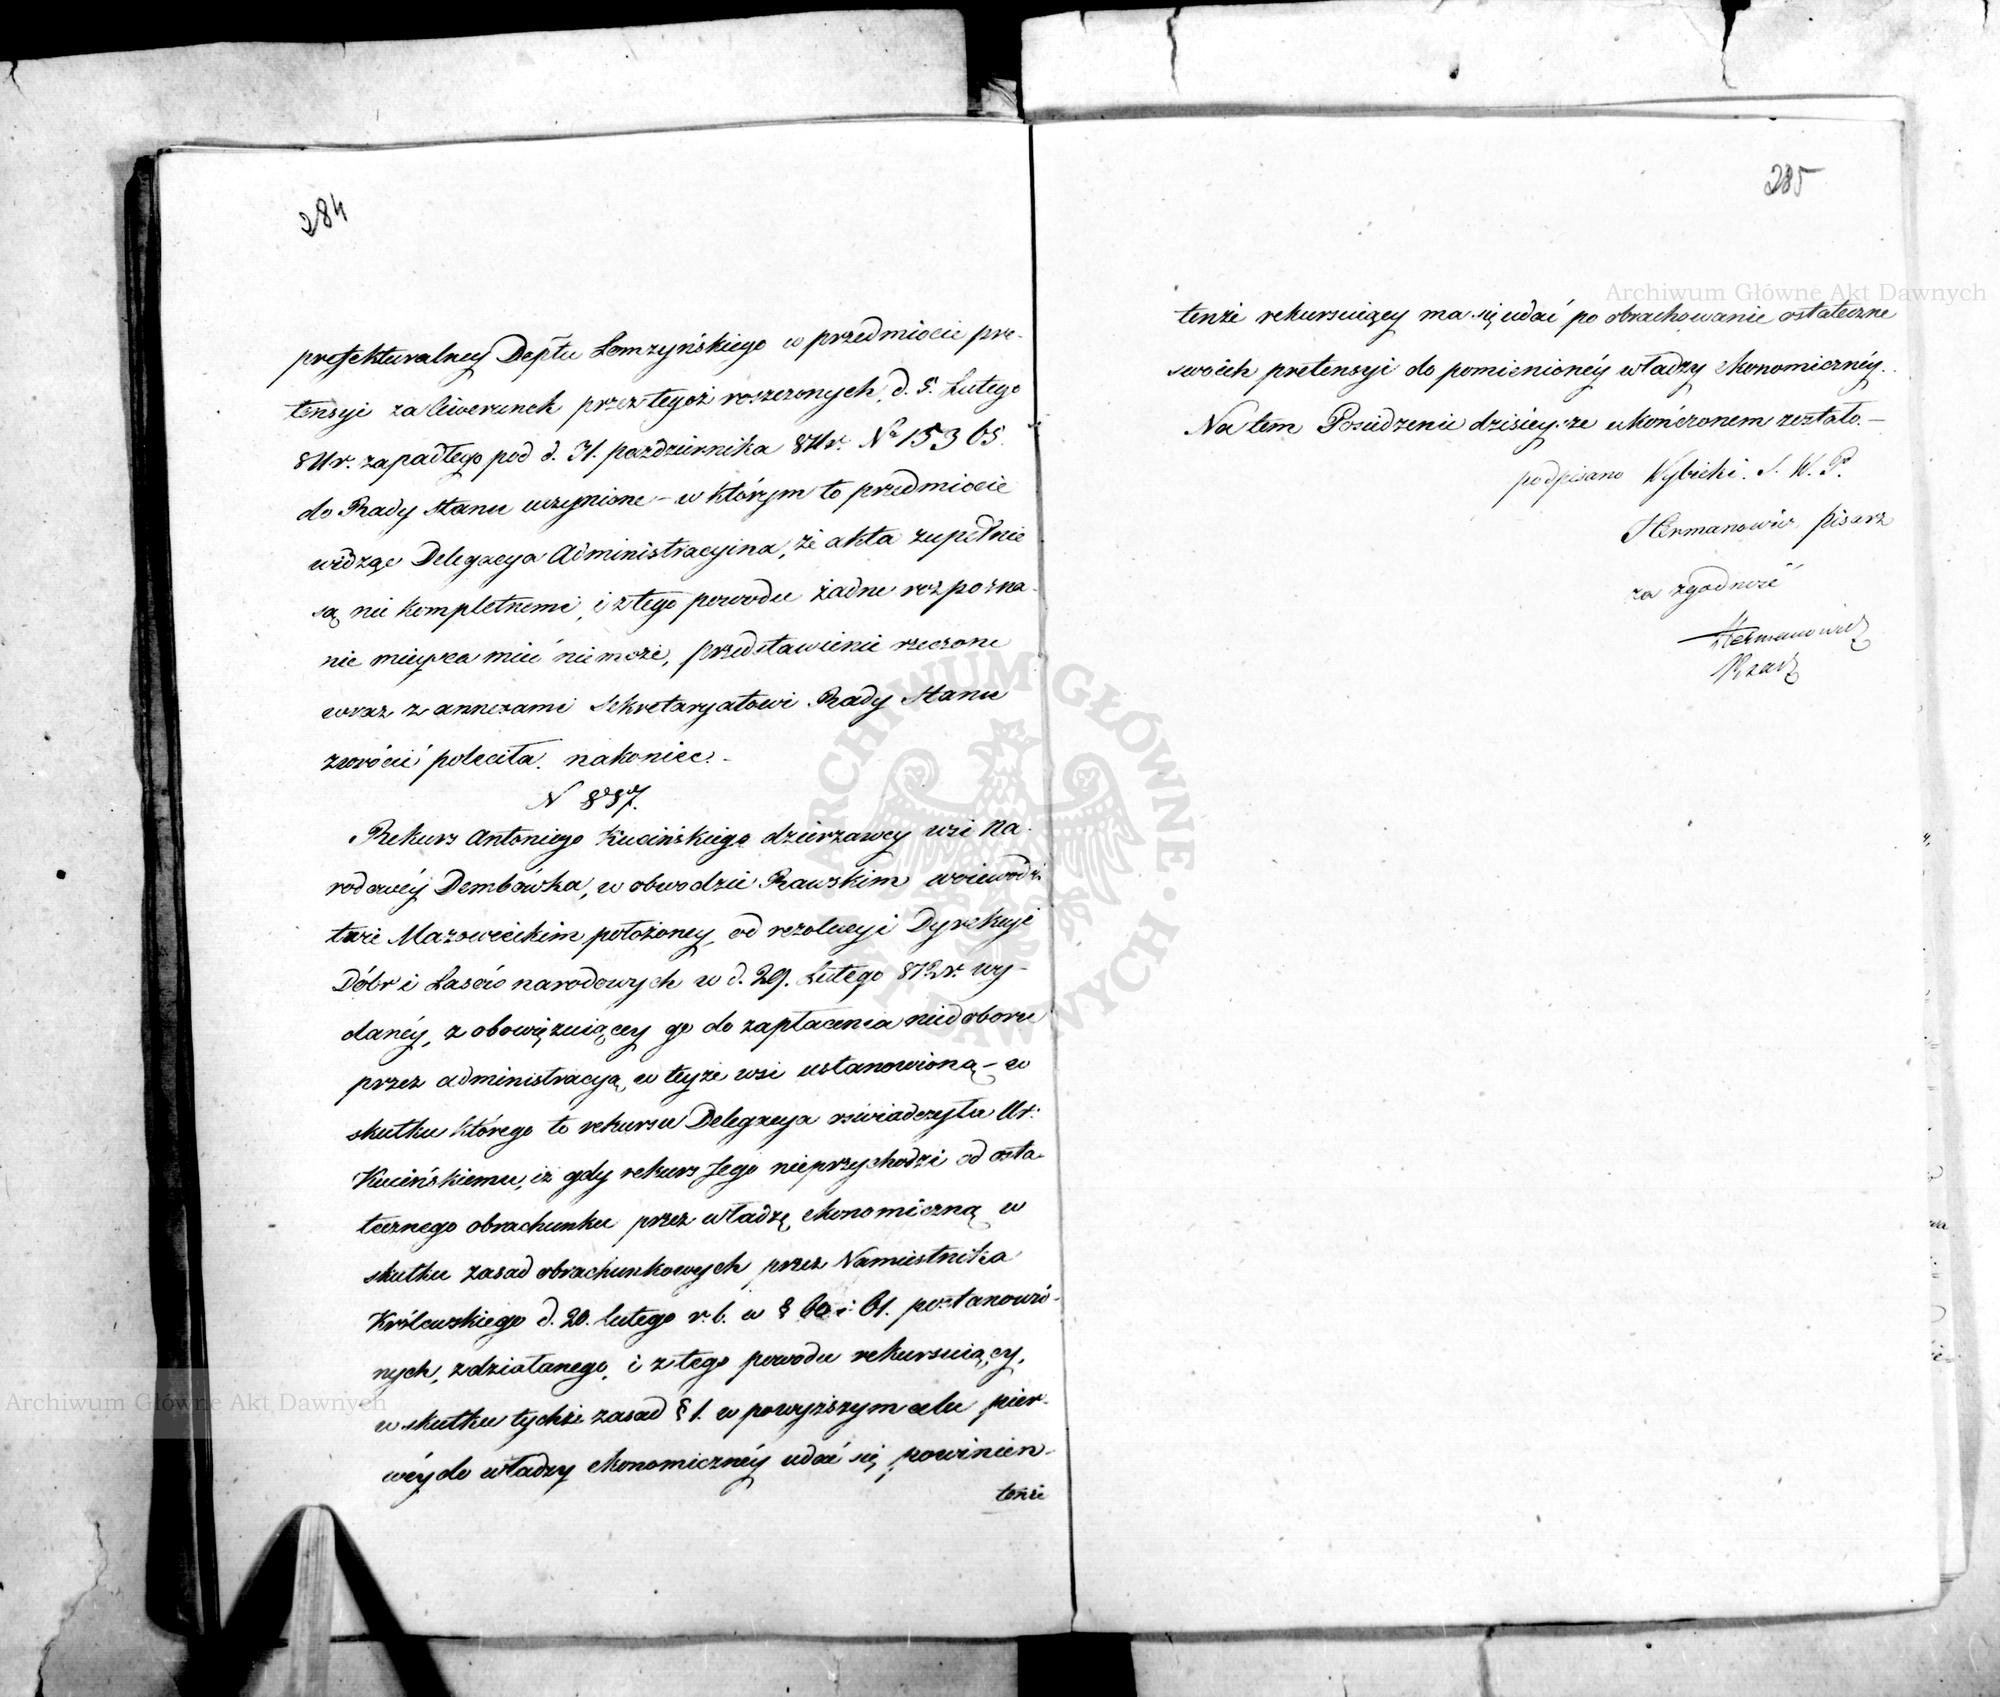 284
prefekturalney Deptu Łomzyńskiego w przedmiocie pre-
tensyi za liwerunek przez tegoż roszczonych, d. 5. Lutego
811r. zapadłego pod d. 31. października 811r. No 15365.
do Rady Stanu uczynione – w którym to przedmiocie
widząc Delegacya Administracyina, że akta zupełnie
są nie kompletnemi, i z tego powodu żadne rozpozna-
nie mieysca mieć niemoże, przedstawienie rzeczone
wraz z annexami Sekretaryatowi Rady Stanu
zwrócić poleciła. nakoniec. –
N 887.
Rekurs Antoniego Kucińskiego dzierzawcy wsi Na-
rodowéy Dembówka, w obwodzie Rawskim woiewódz
twie Mazowieckim położoney, od rezolucyi Dyrekcyi
Dóbr i Lasów narodowych w d. 29. Lutego 812r. wy-
danéy, zobowięzuiącey go do zapłacenia niedoboru
przez administracyą w teyże wsi ustanowioną – w
skutku którego to rekursu Delegacya oświadczyła Ur:
Kucińskiemu, iż gdy rekurs Jego nieprzychodzi od osta-
tecznego obrachunku przez władzę ekonomiczną w
skutku zasad obrachunkowych przez Namiestnika
Królewskiego d. 20. Lutego r. b. w § 60 i 61. postanowio-
nych, zdziałanego, i z tego powodu rekursuiący,
w skutku tychże zasad § 1. w powyższym celu pier-
wéy do władzy ekonomicznéy udać się powinien –
tenże
285
tenże rekursuiący ma się udać po obrachowanie ostateczne
swoich pretensyi do pomienionéy władzy ekonomicznéy.
Na tem Posiedzenie dzisieysze ukończonem zostało. –
podpisano Wybicki. S. W. P.
Hermanowicz, pisarz
za zgodność
Hermanowicz
Pisarz
Archiwum Główne Akt Dawnych
Archiwum Główne Akt Dawnych
ARCHIWUM GŁÓWNE AKT DAWNYCH